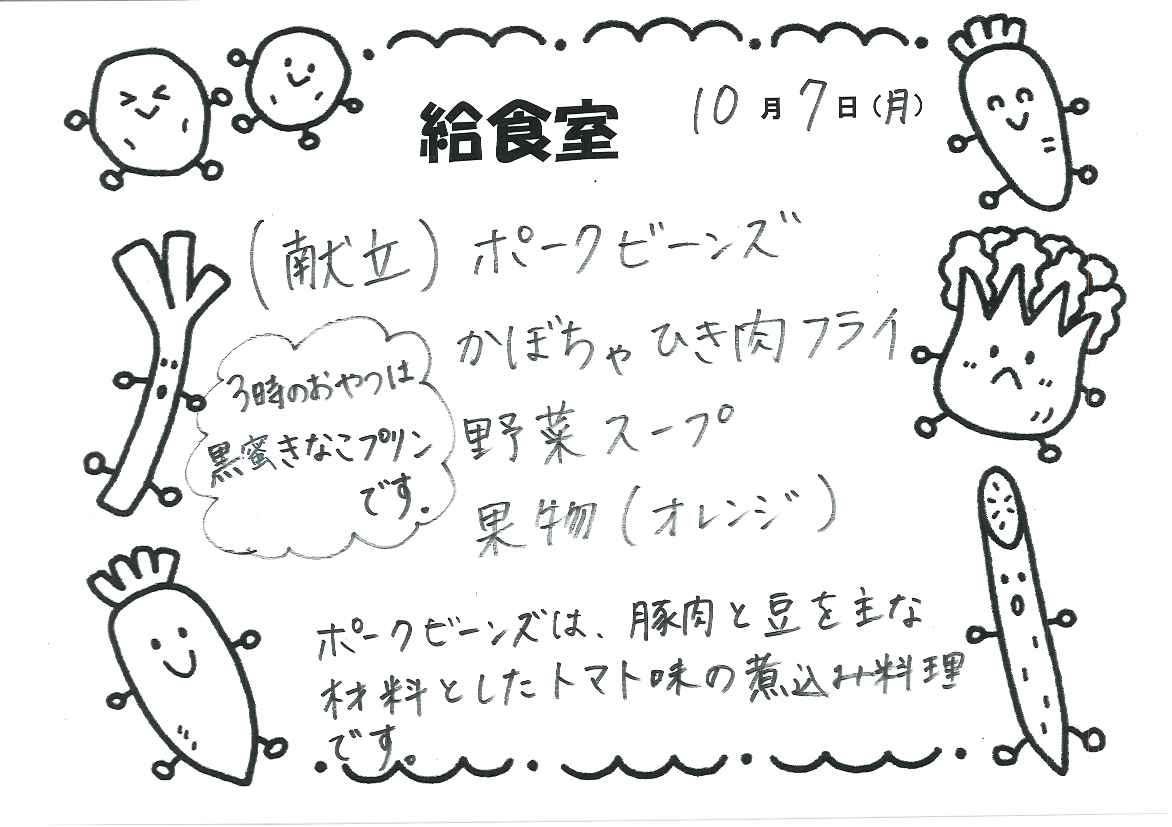 給食室 10月7日(月)
(献立) ポークビーンズ
かぼちゃひき肉フライ
野菜スープ
果物(オレンジ)
3時のおやつは
黒蜜きなこプリン
です.
ポークビーンズは、豚肉と豆を主な
材料としたトマト味の煮込み料理
です。